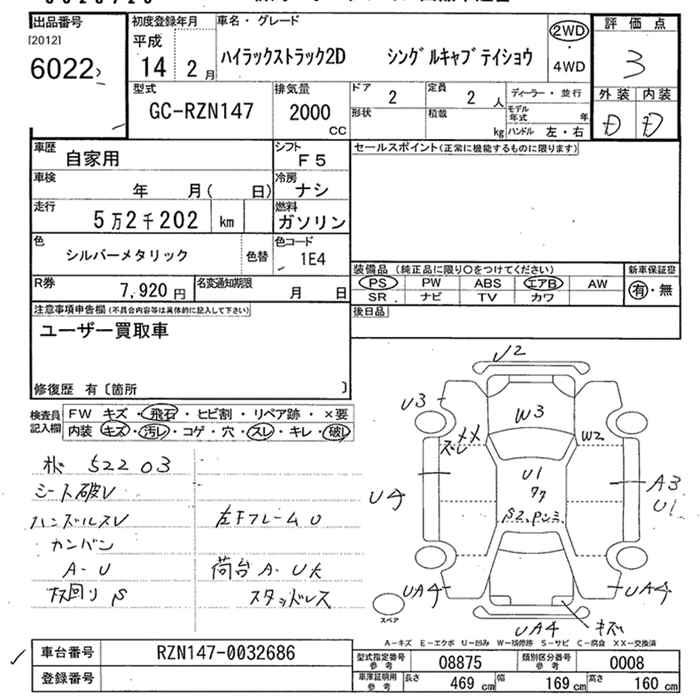 出品番号
[2012]
6022
初度登録年月
平成
14 2月
車名・グレード
ハイラックストラック2D シングルキャブデイショウ
2WD
・
4WD
評価点
3
外装 内装
D D
型式
GC-RZN147
排気量
2000
CC
ドア
2
定員
2 人
形状
積載
kg
ディーラー・並行
モデル年式 年
ハンドル 左・右
車歴
自家用
シフト
F5
車検
年 月( 日)
冷房
ナシ
走行
5万2千202 km
燃料
ガソリン
色
シルバーメタリック
色替
色コード
1E4
R券
7,920円
名変通知期限
月 日
セールスポイント(正常に機能するものに限ります)
装備品 (純正品に限り○をつけてください)
PS PW ABS エアB AW
SR ナビ TV カワ
新車保証書
有・無
後日品
注意事項申告欄(不具合内容等は具体的に記入して下さい)
ユーザー買取車
修復歴 有〔箇所 〕
検査員記入欄
FW キズ・飛石・ヒビ割・リペア跡・×要
内装 キズ・汚レ・コゲ・穴・スレ・キレ・破レ
52203
シート破レ
ハンドルスレ
カンバン
A-U
左Fフレーム U
荷台 A-U大
スタッドレス
U2
U3
W3
W2
U1
U4
A3
U1
UA4
UA4
UA4
キズ
スペア
A-キズ E-エクボ U-凹み W-補修跡 S-サビ C-腐食 XX-交換済
車台番号
RZN147-0032686
登録番号
型式指定番号
参考
08875
類別区分番号
参考
0008
車庫証明用
参考
長さ 469 cm
幅 169 cm
高さ 160 cm